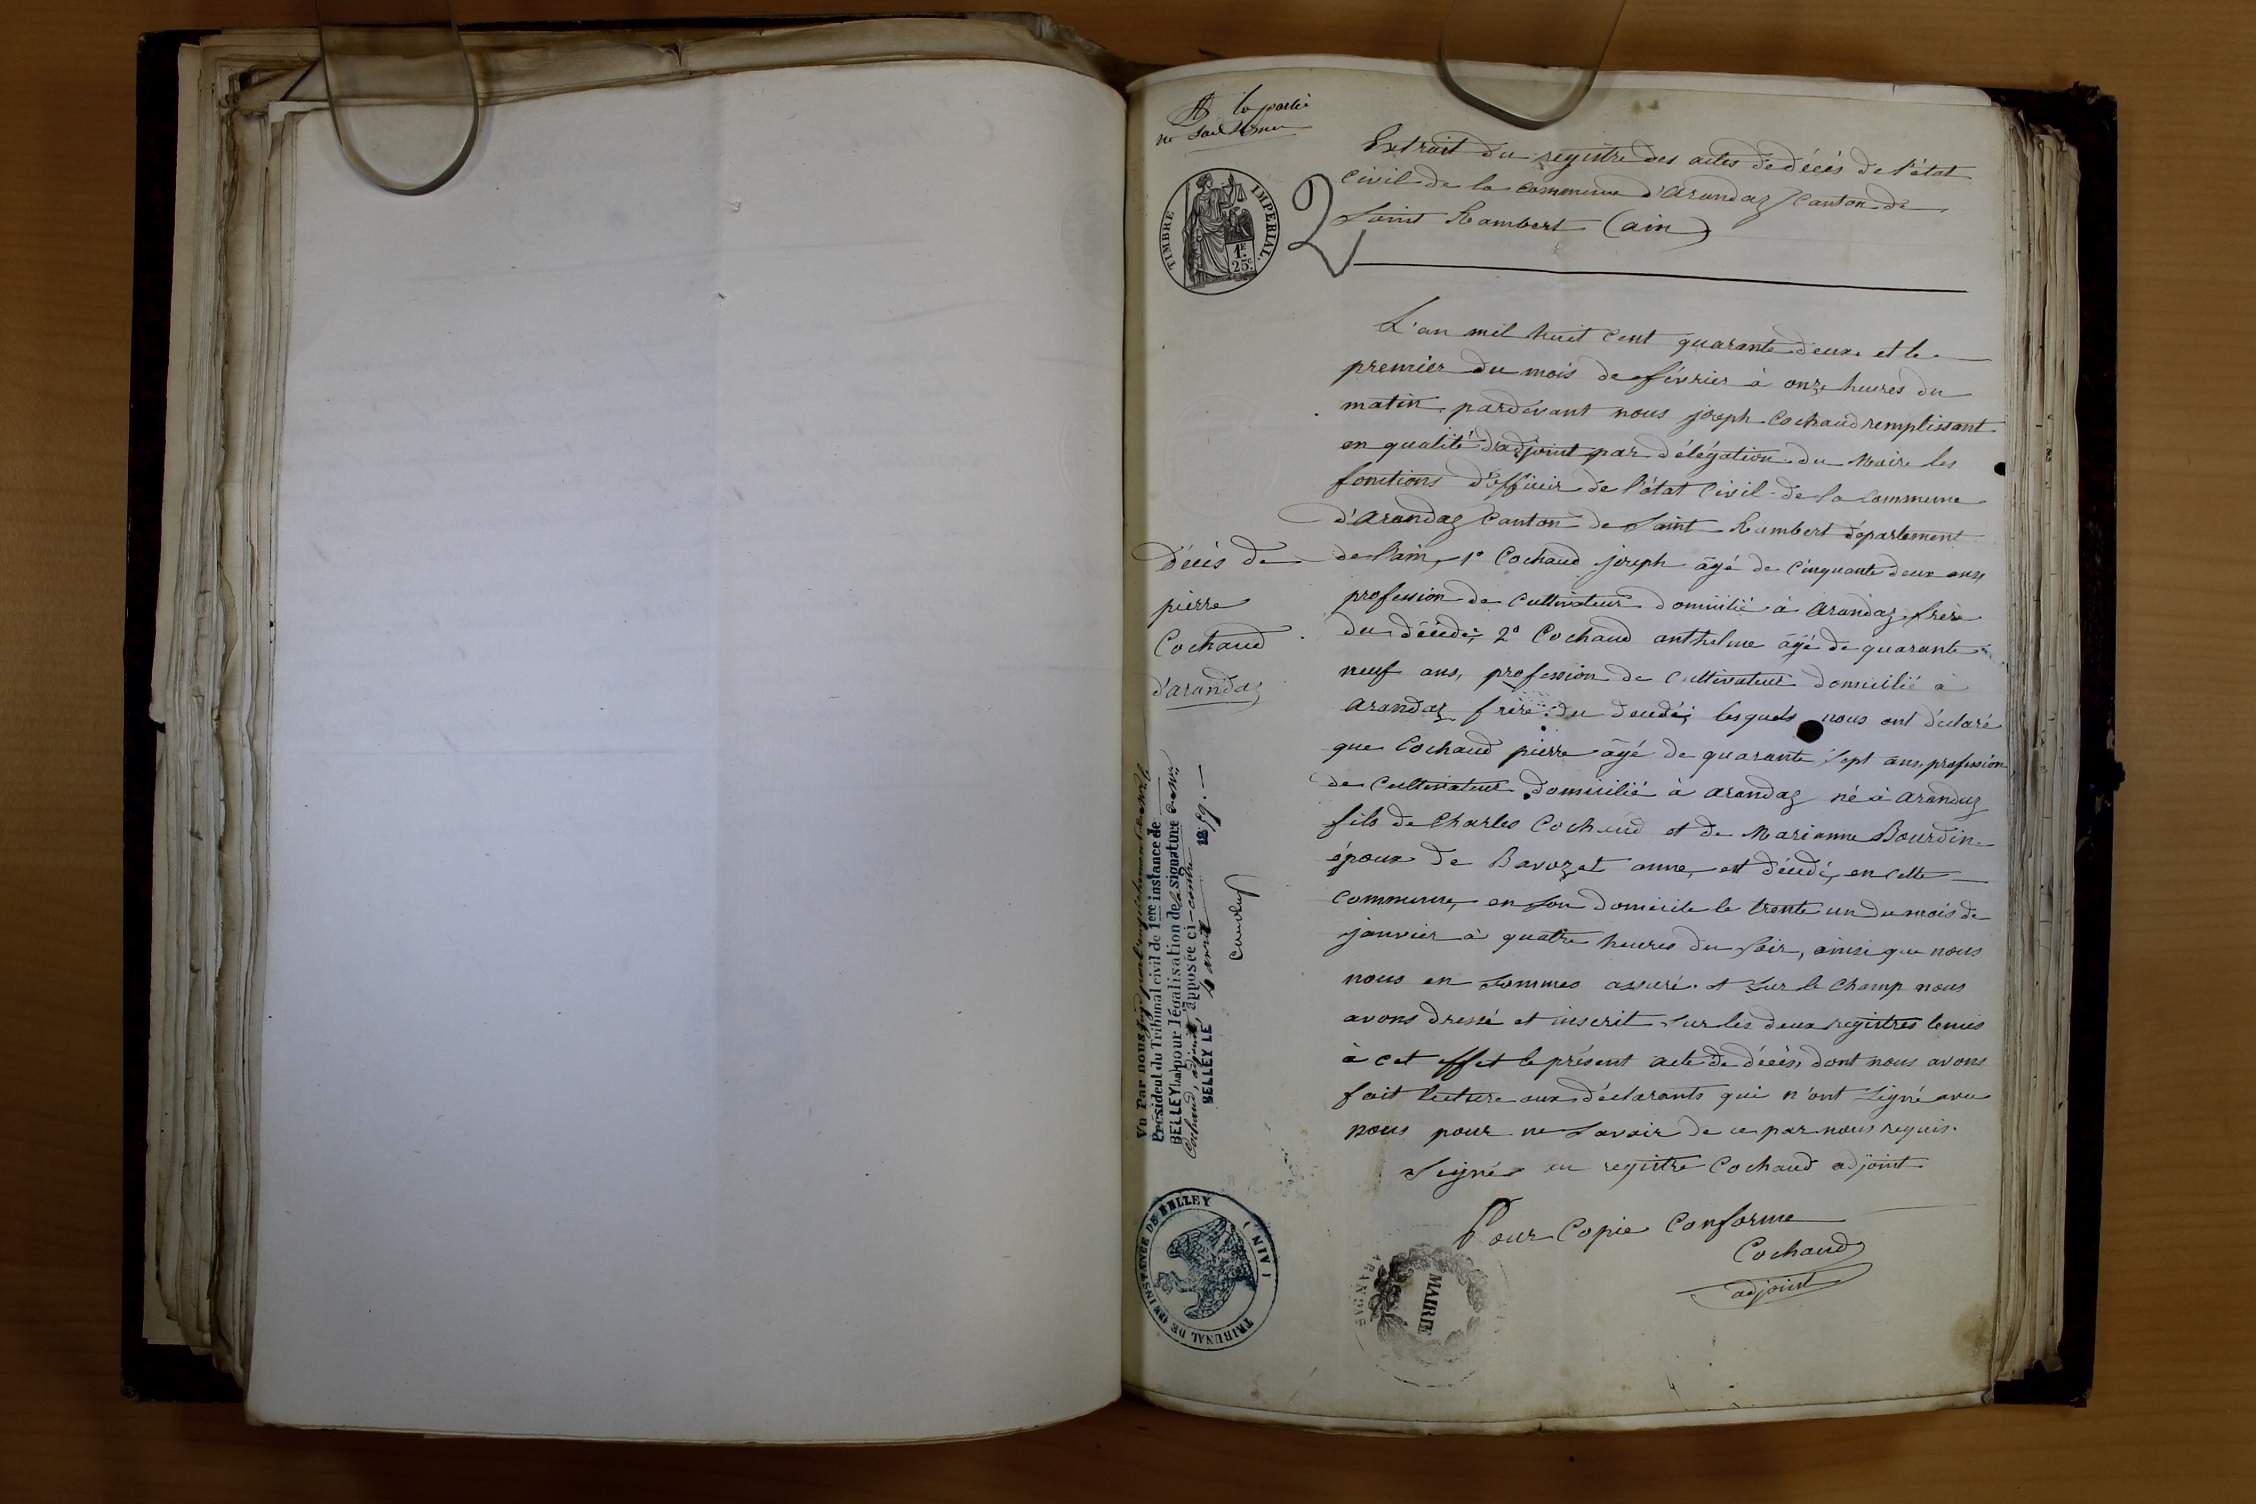 la partie
ne sait signer
TIMBRE IMPERIAL.
1F.
25c.
2
Extrait du registre des actes de décès de l'état
civil de la commune d'Arandaz Canton de
Saint Rambert (ain)
L'an mil huit cent quarante deux et le
premier du mois de février à onze heures du
matin, pardevant nous joseph Cochaud remplissant
en qualité d'adjoint par délégation du Maire les
fonctions d'officier de l'état civil de la commune
d'Arandaz Canton de Saint Rambert département
de l'ain, 1° Cochaud joseph âgé de cinquante deux ans,
profession de cultivateur domicilié à Arandaz, frère
du décédé, 2° Cochaud anthelme âgé de quarante
neuf ans, profession de cultivateur domicilié à
Arandaz frère du décédé; lesquels nous ont déclaré
que Cochaud pierre âgé de quarante sept ans, profession
de cultivateur domicilié à arandaz né à Arandaz
fils de Charles Cochaud et de Marianne Bourdin
époux de Bavozet anne, est décédé, en cette
commune, en son domicile le trente un du mois de
janvier à quatre heures du soir, ainsi que nous
nous en sommes assuré. et sur le champ nous
avons dressé et inscrit sur les deux registres tenus
à cet effet le présent acte de décès, dont nous avons
fait lecture aux déclarants qui n'ont signé avec
nous pour ne savoir de ce par nous requis.
Signé au registre Cochaud adjoint
Pour Copie Conforme
Cochaud
adjoint
Décès de
pierre
Cochaud
d'arandaz
Vu Par nous
Président du Tribunal civil de 1ere instance de
BELLEY pour légalisation de la signature de Mr
Cochaud, adjoint apposée ci-contre
BELLEY LE 4 avril 1859.
TRIBUNAL DE 1ère INSTANCE DE BELLEY (AIN)
MAIRIE
ARANDAS